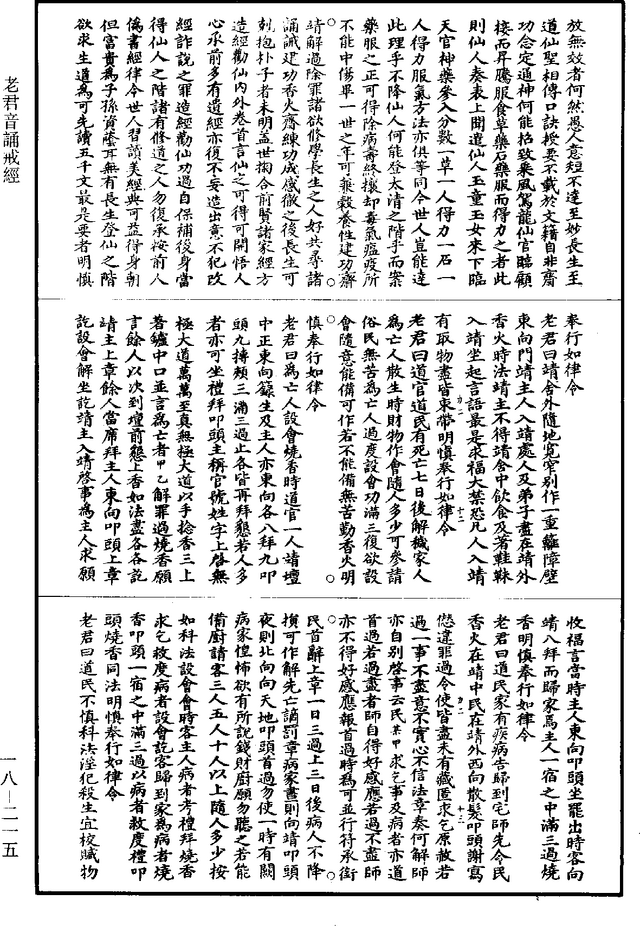 老君音誦戒經
放無效者何然愚人意短不達至妙長生至
道仙聖相傳口訣授要不載於文籍自非齋
功念定通神何能招致乘風駕龍仙官臨顧
接而昇騰服食草藥石藥服而得力之者此
則仙人奏表上聞遣仙人玉童玉女來下臨
天官神藥參入分數一草一人得力一石一
人得力服氣方法亦俱等同今世人豈能達
此理乎不降仙人何能登太清之階乎而案
藥服之正可得除病壽終攘却毒氣瘟疫所
不能中傷畢一世之年可兼穀養性建功齋
靖解過除罪諸欲修學長生之人好共尋諸
誦誡建功香火齋練功成感徹之後長生可
剋抱朴子者未明蓋世掬合前賢諸家經方
造經勸仙內外卷首言仙之可得可開悟人
心承前多有遺經亦復不妄造出意不犯改
經詐說之罪造經勸仙功過自保補後身當
得仙人之階諸有修道之人勿復承按前人
偽書經律令世人習讀美經典可益得身朝
但富貴為子孫資蔭耳無有長生登仙之階
欲求生道為可先讀五千文最是要者明慎
奉行如律令
老君曰靖舍外隨地寬窄別作一重籬障壁
東向門靖主人入靖處人及弟子盡在靖外
香火時法靖主不得靖舍中飲食及著鞋靺
入靖坐起言語最是求福大禁恐凡人入靖
有取物盡皆束帶明慎奉行如律令
老君曰道官道民有死亡七日後解穢家人
為亡人散生時財物作會隨人多少可參請
俗民無苦為亡人過度設會功滿三復欲設
會隨意能備可作若不能備無苦勤香火明
慎奉行如律令
老君曰為亡人設會燒香時道官一人靖壇
中正東向籙生及主人亦東向各八拜九叩
頭九搏頰三滿三過止各皆再拜懇若人多
者亦可坐禮拜叩頭主稱官號姓字上啓無
極大道萬萬至真無極大道以手捻香三上
著鑪中口並言為亡者甲乙解罪過燒香願
言餘人以次到壇前懇上香如法盡各各訖
靖主上章餘人當席拜主人東向叩頭上章
訖設會解坐訖靖主入靖啓事為主人求願
收福言當時主人東向叩頭坐罷出時客向
靖八拜而歸家為主人一宿之中滿三過燒
香明慎奉行如律令
老君曰道民家有疾病告歸到宅師先令民
香火在靖中民在靖外西向散髮叩頭謝寫
愆違罪過令使皆盡未有藏匿求乞原赦若
過一事不盡意不實心不信法章奏何解師
亦自別啓事云民某甲求乞事及病者亦道
首過若過盡者師自得好感應若過不盡師
亦不得好感應報首過時為可並行符承銜
民首辭上章一日三過上三日後病人不降
損可作解先亡謫罰章病家晝則向靖叩頭
夜則北向向天地叩頭首過勿使一時有闕
病家惶怖欲有所說錢財厨願勿聽之若能
備厨請客三人五人十人以上隨人多少按
如科法設會會時客主人病者考禮拜燒香
求乞救度病者設會訖客歸到家為病者燒
香叩頭一宿之中滿三過以病者救度禮叩
頭燒香同法明慎奉行如律令
老君曰道民不慎科法淫犯殺生宜校贓物
一八—二一五